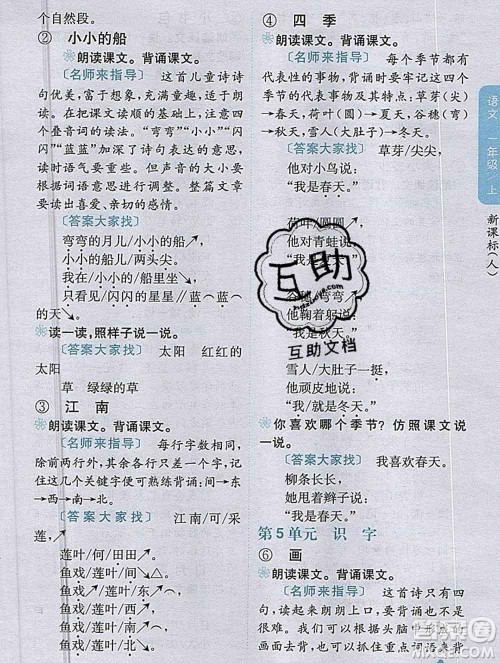 个自然段。
② 小小的船
朗读课文。背诵课文。
〔名师来指导〕 这首儿童诗诗
句优美，富于想象，充满童趣，适于朗
读。在把课文读顺的基础上，注意四
个叠音词的读法。“弯弯”“小小”“闪
闪”“蓝蓝”加深了诗句表达的意思，
读时语气要重一些。但声音的大小要
根据诗意进行调整。整篇文章
要读出喜爱、亲切的感情。
〔答案大家找〕
弯弯的月儿/小小的船↗，
小小的船/两头尖。
我在/小小的/船里坐，
只看见/闪闪的星星/蓝蓝的
的天↘。
读一读，照样子说一说。
〔答案大家找〕 太阳 红红的
太阳
草 绿绿的草
③ 江南
朗读课文。背诵课文。
〔名师来指导〕 每行字数相同，
除前面两行外，其他行只换一个字，记
住这几个关键字便可熟练背诵：间→东
→西→南→北
〔答案大家找〕 江南/可/采
莲↗，
莲叶/何/田田↗。
鱼戏/莲叶/间↘。
鱼戏/莲叶/东↗，
鱼戏/莲叶/西↘，
鱼戏/莲叶/南↗，
鱼戏/莲叶/北↘。
④ 四季
朗读课文。背诵课文。
〔名师来指导〕 每个季节都有
代表性的事物，背诵时要牢记这四个
季节的代表事物及其特点：草芽(尖)
→春天，荷叶(圆)→夏天，谷穗(弯)
→秋天，雪人(大肚子)→冬天。
〔答案大家找〕 草芽/尖尖，
他对小鸟说：
“我是春天。”
荷叶/圆圆，
他对青蛙说：
谷穗/弯弯，
他鞠着躬说：
“我是秋天。”
雪人/大肚子/一挺，
他顽皮地说：
“我/就是冬天。”
你喜欢哪个季节？仿照课文说
一说。
〔答案大家找〕 我喜欢春天。
柳条长长，
她甩着辫子说：
“我是春天。”
第5单元 识字
⑥ 画
朗读课文。背诵课文。
〔名师来指导〕 这首诗只有四
句，读起来朗朗上口，要背下来并不
很难。另外，可以结合课文后面的
画面去背，也可以抓住重点词语来背
语文 一年级 上
新课标(人)
互助
互助文档